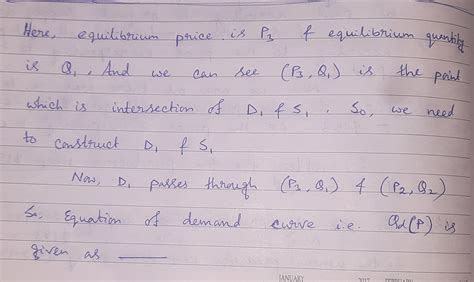 Here, equilibrium price is P₃ & equilibrium quantity
is Q₁. And we can see (P₃, Q₁) is the point
which is intersection of D₁ & S₁. So, we need
to construct D₁ & S₁
Now, D₁ passes through (P₃, Q₁) & (P₂, Q₂)
So, Equation of demand curve i.e. Qd(P) is
given as ____
JANUARY 2017 FEBRUARY